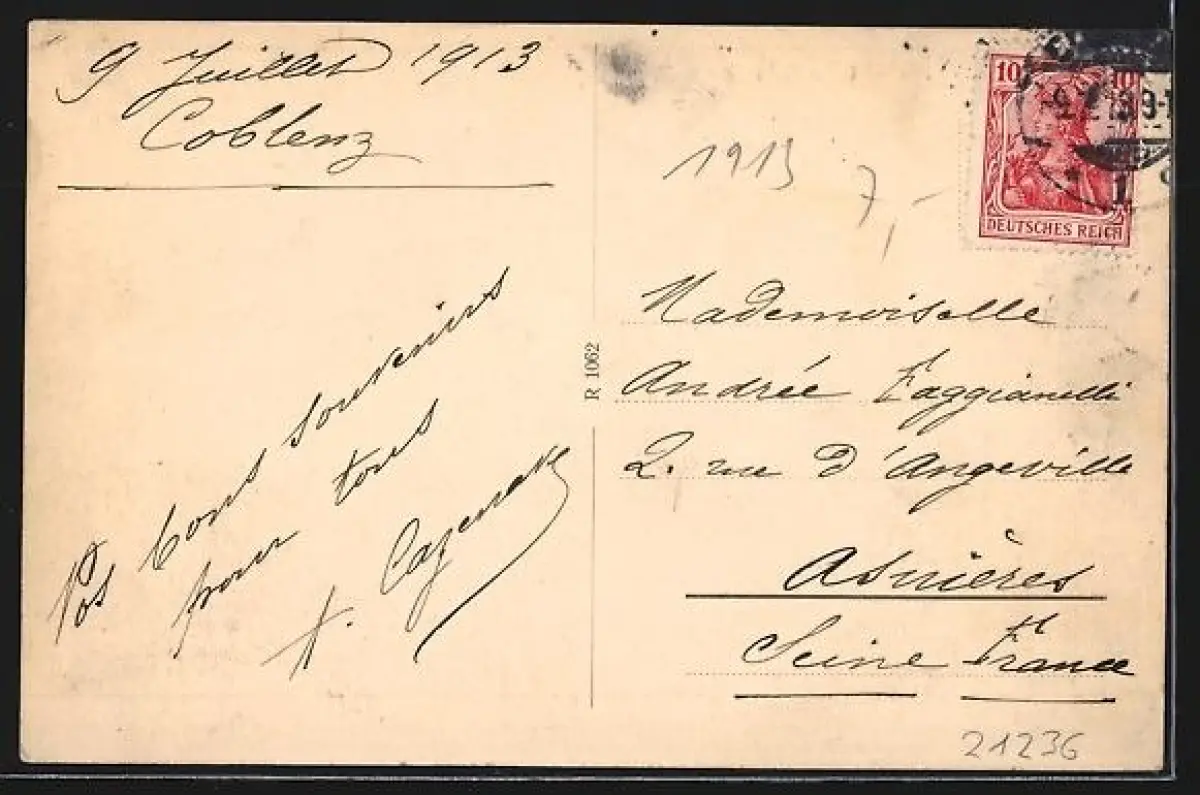 9 Juillet 1913
Coblenz
Nos bons souvenirs
pour tous
1913
7,-
10 10
DEUTSCHES REICH
R 1062
Mademoiselle
Andrée Faggianelli
2. rue d'Angeville
Asnières
Seine France
21236